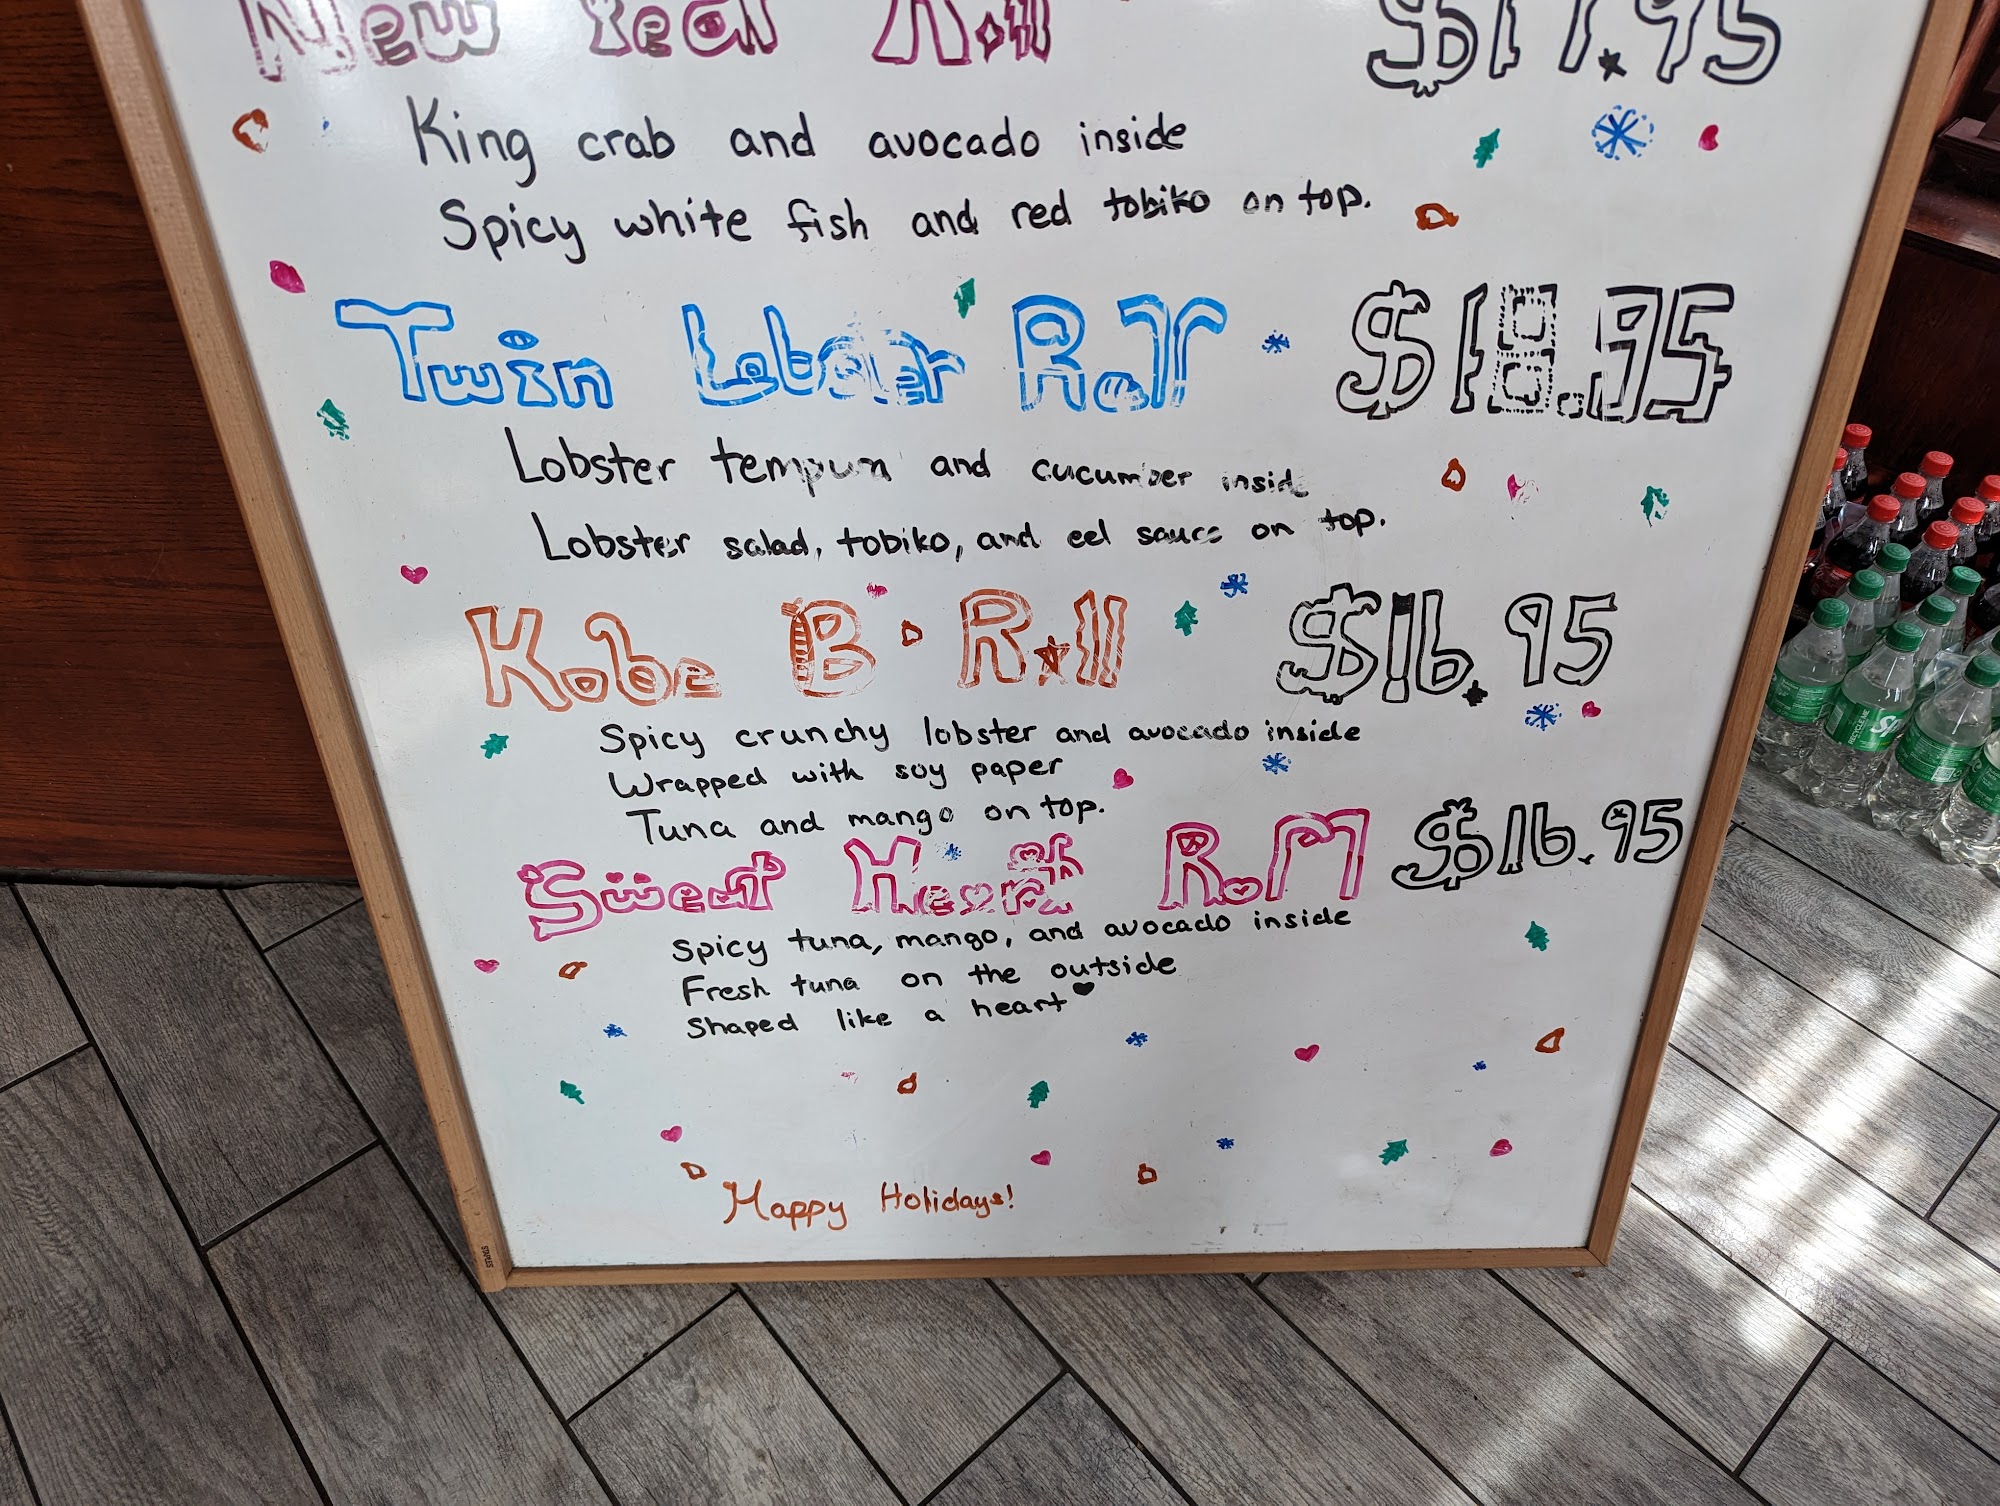 New Year Roll $17.95
King crab and avocado inside
Spicy white fish and red tobiko on top.
Twin Lobster Roll $18.95
Lobster tempura and cucumber inside
Lobster salad, tobiko, and eel sauce on top.
Kobe B. Roll $16.95
Spicy crunchy lobster and avocado inside
Wrapped with soy paper
Tuna and mango on top.
Sweet Heart Roll $16.95
Spicy tuna, mango, and avocado inside
Fresh tuna on the outside
Shaped like a heart
Happy Holidays!
STAPLES
RECYCLE ME